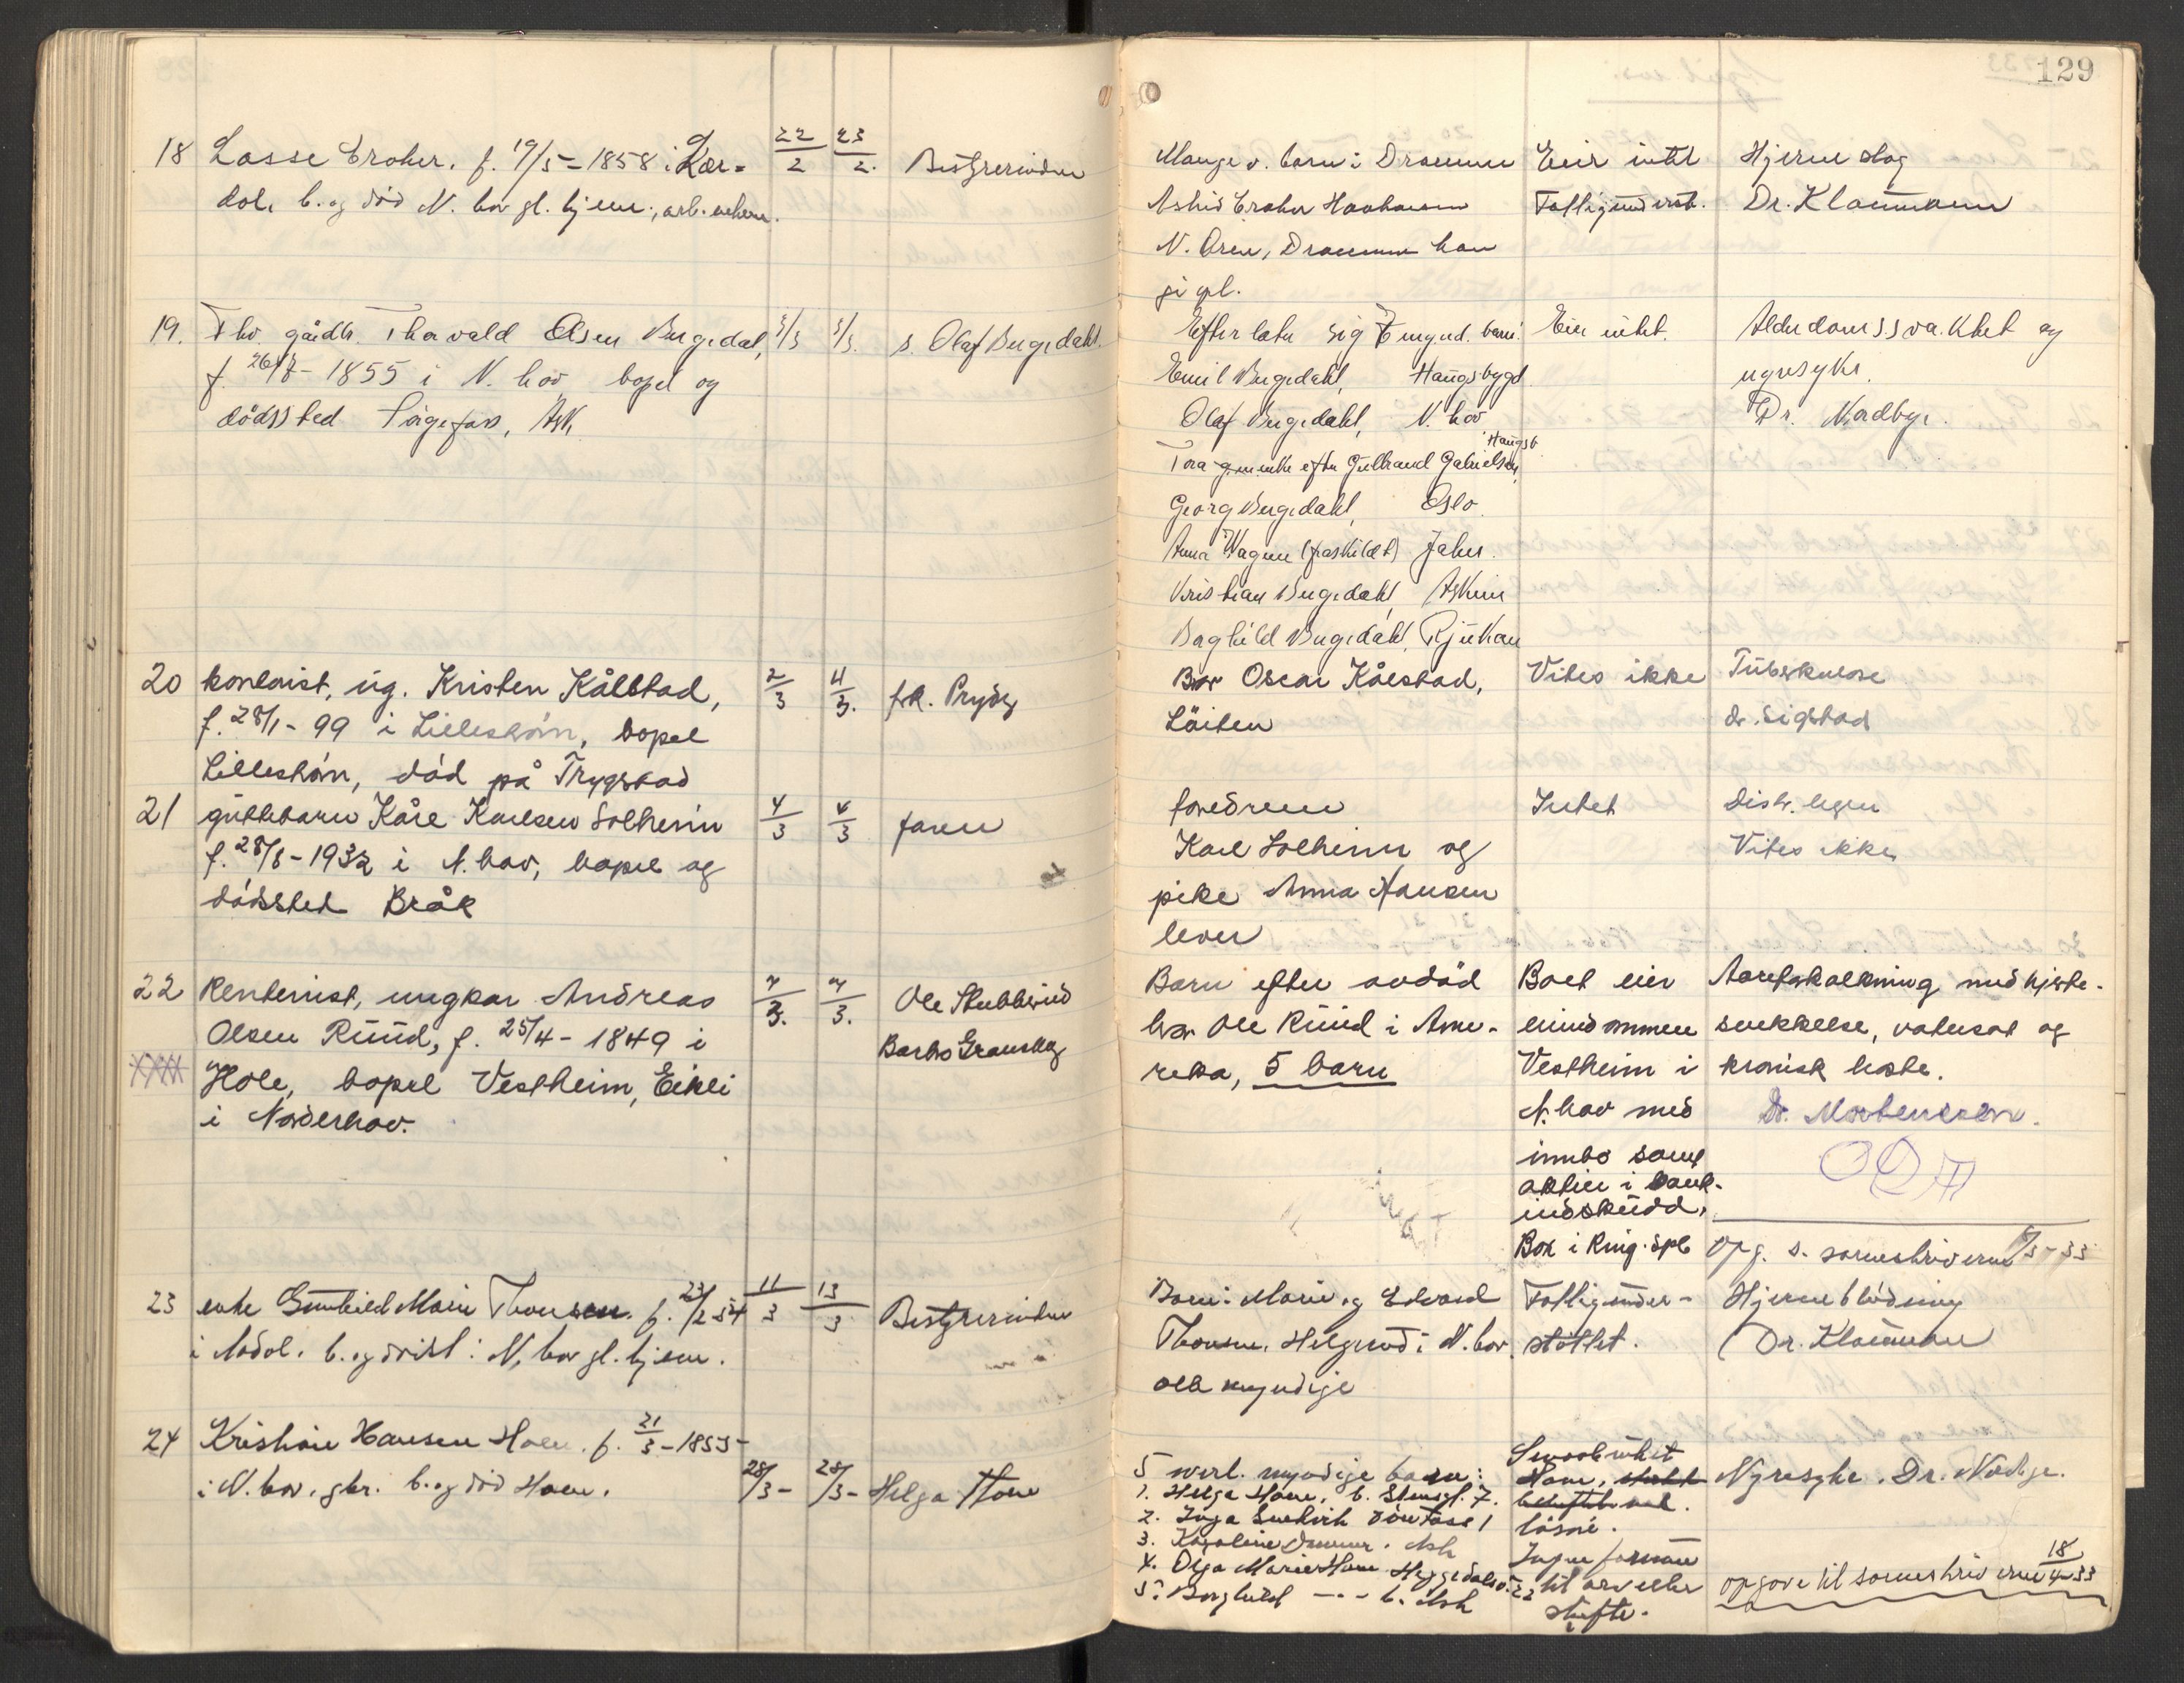 129
18 Lasse Eroher. f. 19/5 - 1858 i Lær=
dal. b. og död N. hov gl. hjem;, arb. enkem.
22/2 23/2. Bestyrerinden
Mange v. barn i Drammen
Astrid Eroher
N. Øren, Drammen han
gi opl.
Eier intet
Fattigunderst.
Hjerne slag
Dr. Klaumann
19. Fhv. gårdbr. Thorvald Olsen Bergedal,
f. 26/8 - 1855 i N. hov bopel og
dödssted Lågefoss, Ask
3/3 3/3. s. Olaf Bergedahl.
Efterlater sig 7 mynd. barn:
Emil Bergedahl, Haugsbygd
Olaf Bergedahl, N. hov
Haugsb.
Tora g.m. enke efter Gulbrand Gabrielsen,
Georg Bergedahl, Oslo.
Anna Wagen (fraskildt) Jahr.
Kristian Bergedahl, Askim
Raghild Bergedahl, Rjukan
Eier intet.
Alderdomssvakhet og
nyresyke.
Dr. Nordbye.
20 kontorist, ug. Kristen Kålstad,
f. 28/1 - 99 i Lilleström, bopel
Lilleström, död på Trygstad
2/3 4/3. frk. Pryds
Bror Oscar Kålstad,
Löiten
Vites ikke
Tuberkulose
dr. Sigstad
21 guttebarn Kåre Karlsen Solheim
f. 28/8 - 1932 i N. hov, bopel og
dödssted Bråk
4/3 4/3 faren
foreldrene
Karl Solheim og
pike Anna Hansen
lever
Intet
Distr. legen
Vites ikke
22 Rentenist, ungkar Andreas
Olsen Rüüd, f. 25/4 - 1849 i
Hole, bopel Vestheim, Eikli
i Norderhov.
7/3. 7/3. Ole Stubberud
Barbro Gransberg
Barn efter avdöd
bror Ole Rüüd i Ame-
rika, 5 barn
Boet eier
eiendommen
Vestheim i
N. hov med
innbo samt
aktier i bank-
indskudd.
Bok i Ring. spb
Aareforkalkning med hjerte-
svekkelse, vatersot og
kronisk hoste.
Dr. Mortensen.
Opg. s. sorenskriveren 8/3 - 33
23 enke Gunhild Marie Thonsen. f. 23/2 - 54
i Aadal. b. og död i N. hov gl. hjem.
11/3 13/3 Bestyrerinden
Barn: Marie og Edvard
Thonsen, Helgerud i N. hov.
alle myndige
Fattigunder-
stöttet.
Hjerneblödning
Dr. Klaumann
24 Kristian Hansen Hoen. f. 21/3 - 1853 -
i N. hov. gbr. b. og död Hoen.
28/3 - 28/3 - Helga Hoen
5 overl. myndige barn:
1. Helga Hoen, b. Stensgt. 7.
2. Inga
3. Karoline . Ask
4. Olga Marie Hoen
5. Borghild - - - b. Ask
Smaabruket
Hoen,
lösöre.
Ingen formue
til arv eller
skifte.
Nyresyke. Dr. Nordbye.
opgave til sorenskriveren 18/4 - 33